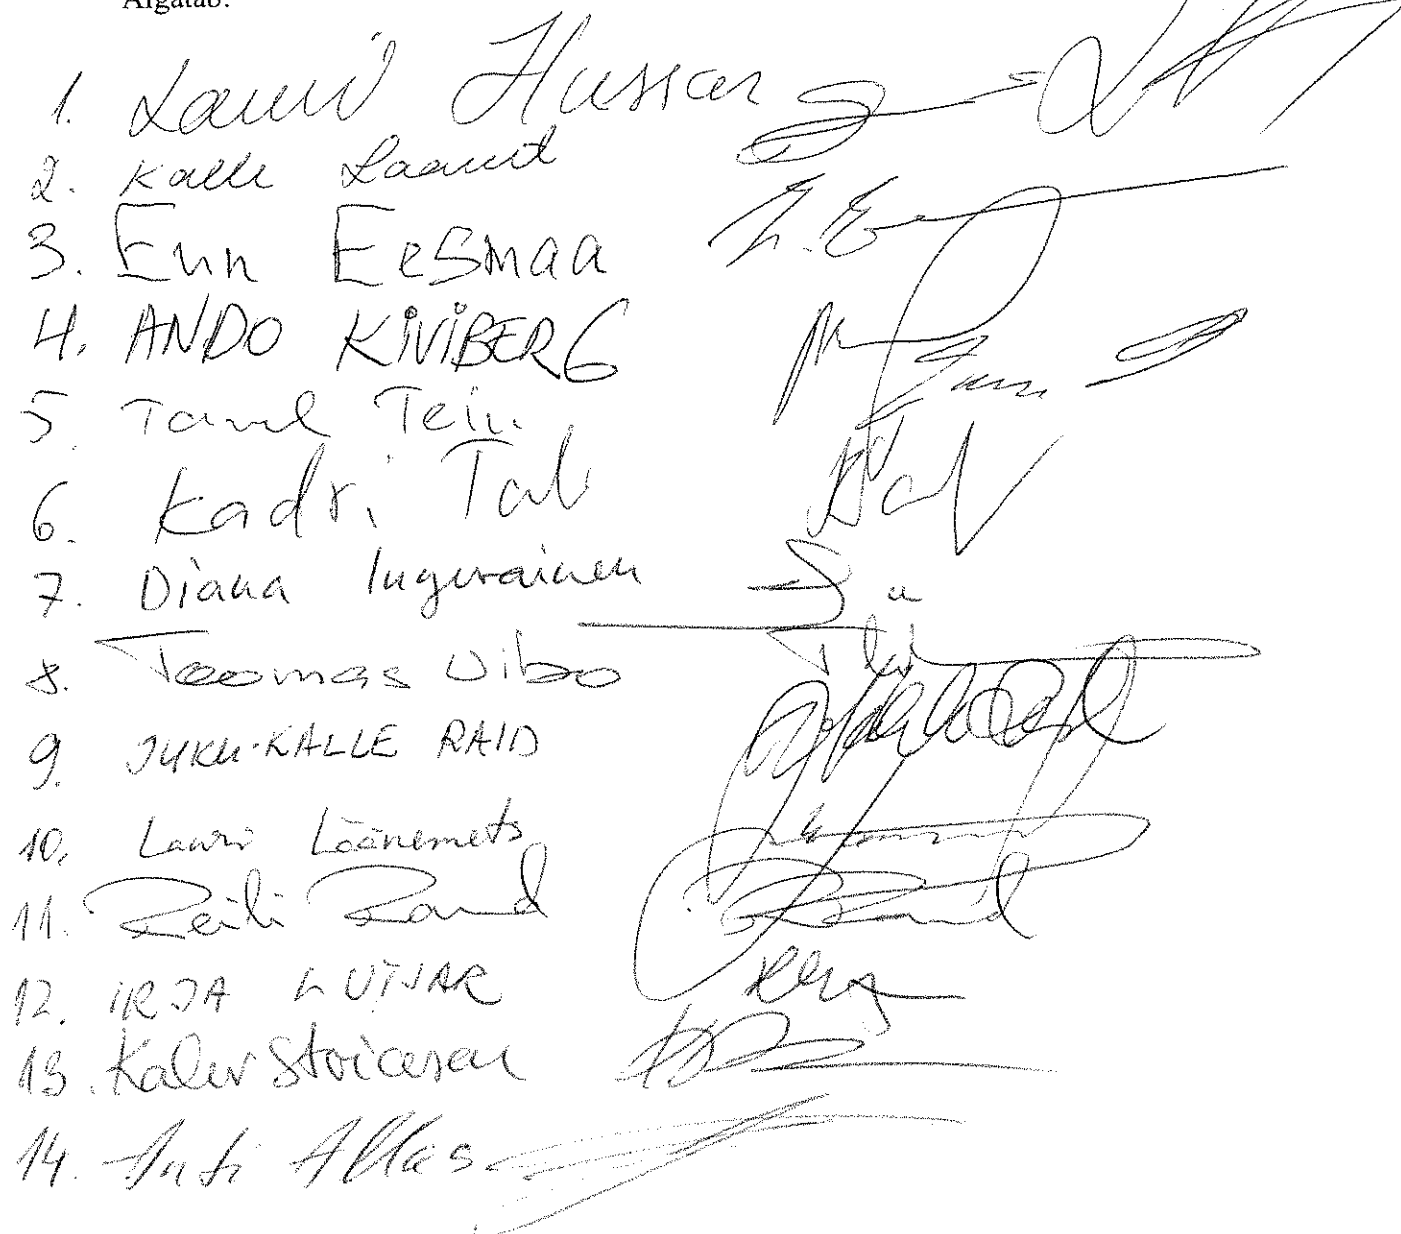 Algatab:
1. Lauri Hussar
2. Kalle Laanet
3. Enn Eesmaa
4. ANDO KIVIBERG
5. Tanel Tein
6. Kadri Tali
7. Diana Ingerainen
8. Toomas Uibo
9. JUKU-KALLE RAID
10. Lauri Läänemets
11. Reili Rand
12. IRJA LUTSAR
13. Kalev Stoicescu
14. Anti Allas